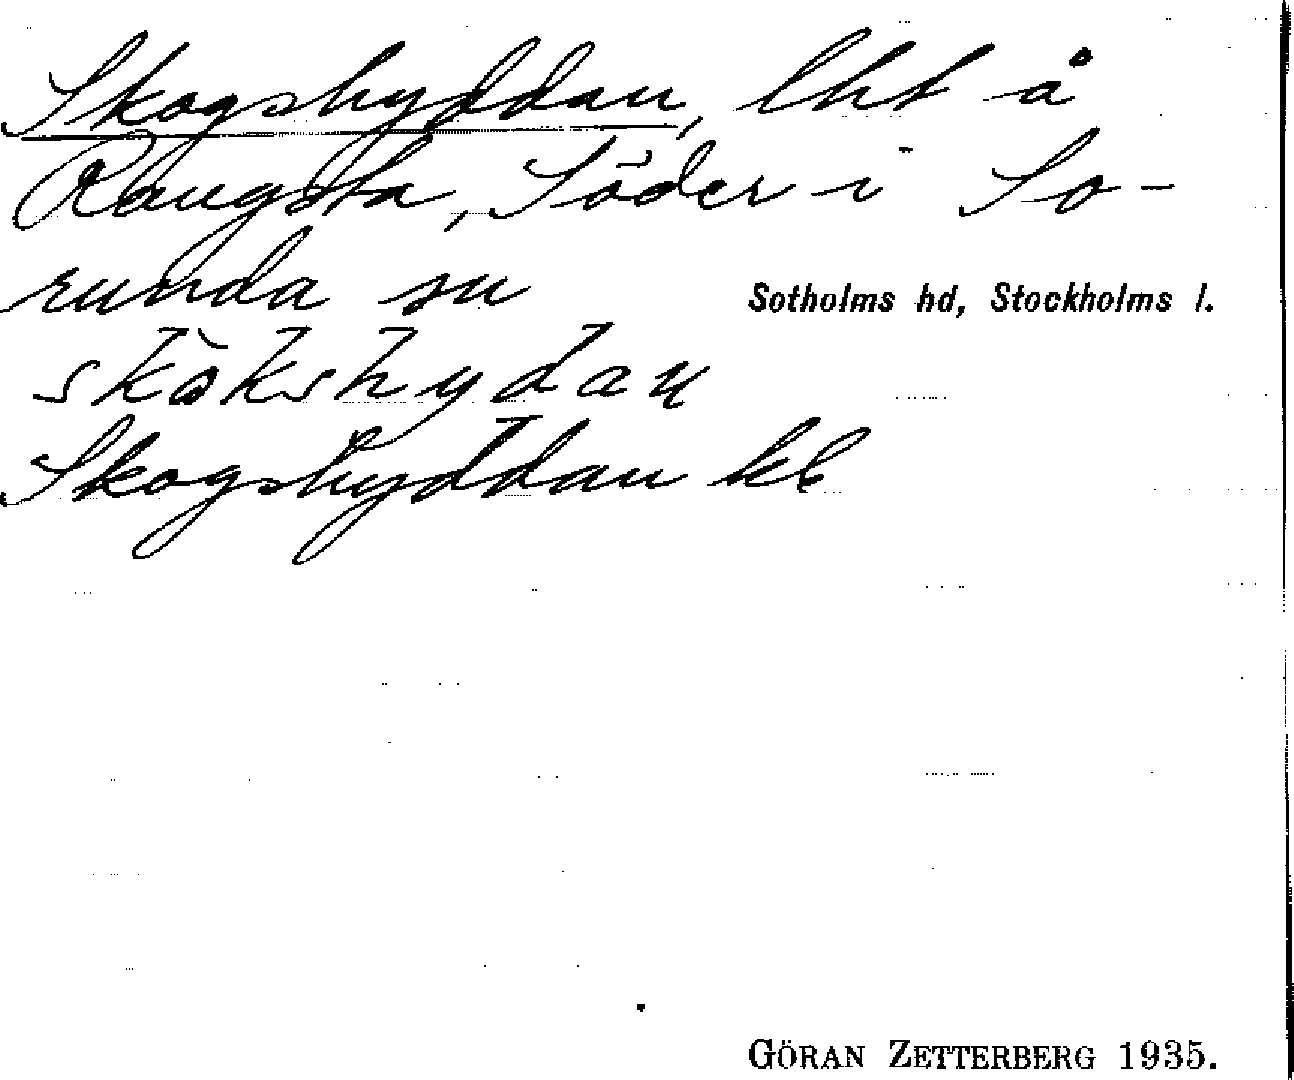 Skogshyddan, lht å
Rangsta, Söder i So-
runda sn
Sotholms hd, Stockholms l.
skòkshydan
Skogshyddan kb
GÖRAN ZETTERBERG 1935.